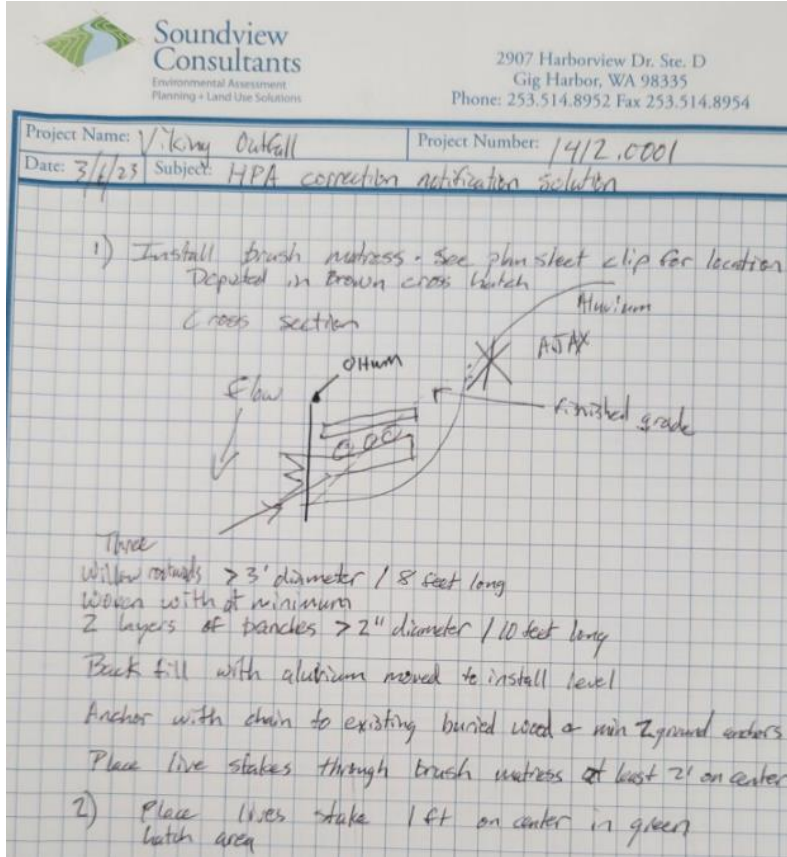 Soundview
Consultants
Environmental Assessment
Planning + Land Use Solutions
2907 Harborview Dr. Ste. D
Gig Harbor, WA 98335
Phone: 253.514.8952 Fax 253.514.8954
Project Name: Viking Outfall
Project Number: 1412.0001
Date: 3/6/23 Subject: HPA correction notification solution
1) Install brush mattress. See plan sheet clip for location
Depicted in Brown cross hatch
Cross section
Aluvium
AJAX
OHWM
Flow
finished grade
Three
Willow rootwads >3' diameter / 8 feet long
Woven with at minimum
2 layers of banches >2" diameter / 10 feet long
Back fill with aluvium moved to install level
Anchor with chain to existing buried wood or min 2 ground anchors
Place live stakes through brush mattress at least 2' on center
2) Place lives stake 1 ft on center in green
hatch area